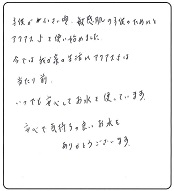 子供が小さい頃、敏感肌の子供のためにと
アクアスよを使い始めました。
今では我が家の生活にアクアスよは
当たり前。
いつでも安心してお水を使っています。
安心で気持ちの良いお水を
ありがとうございます。